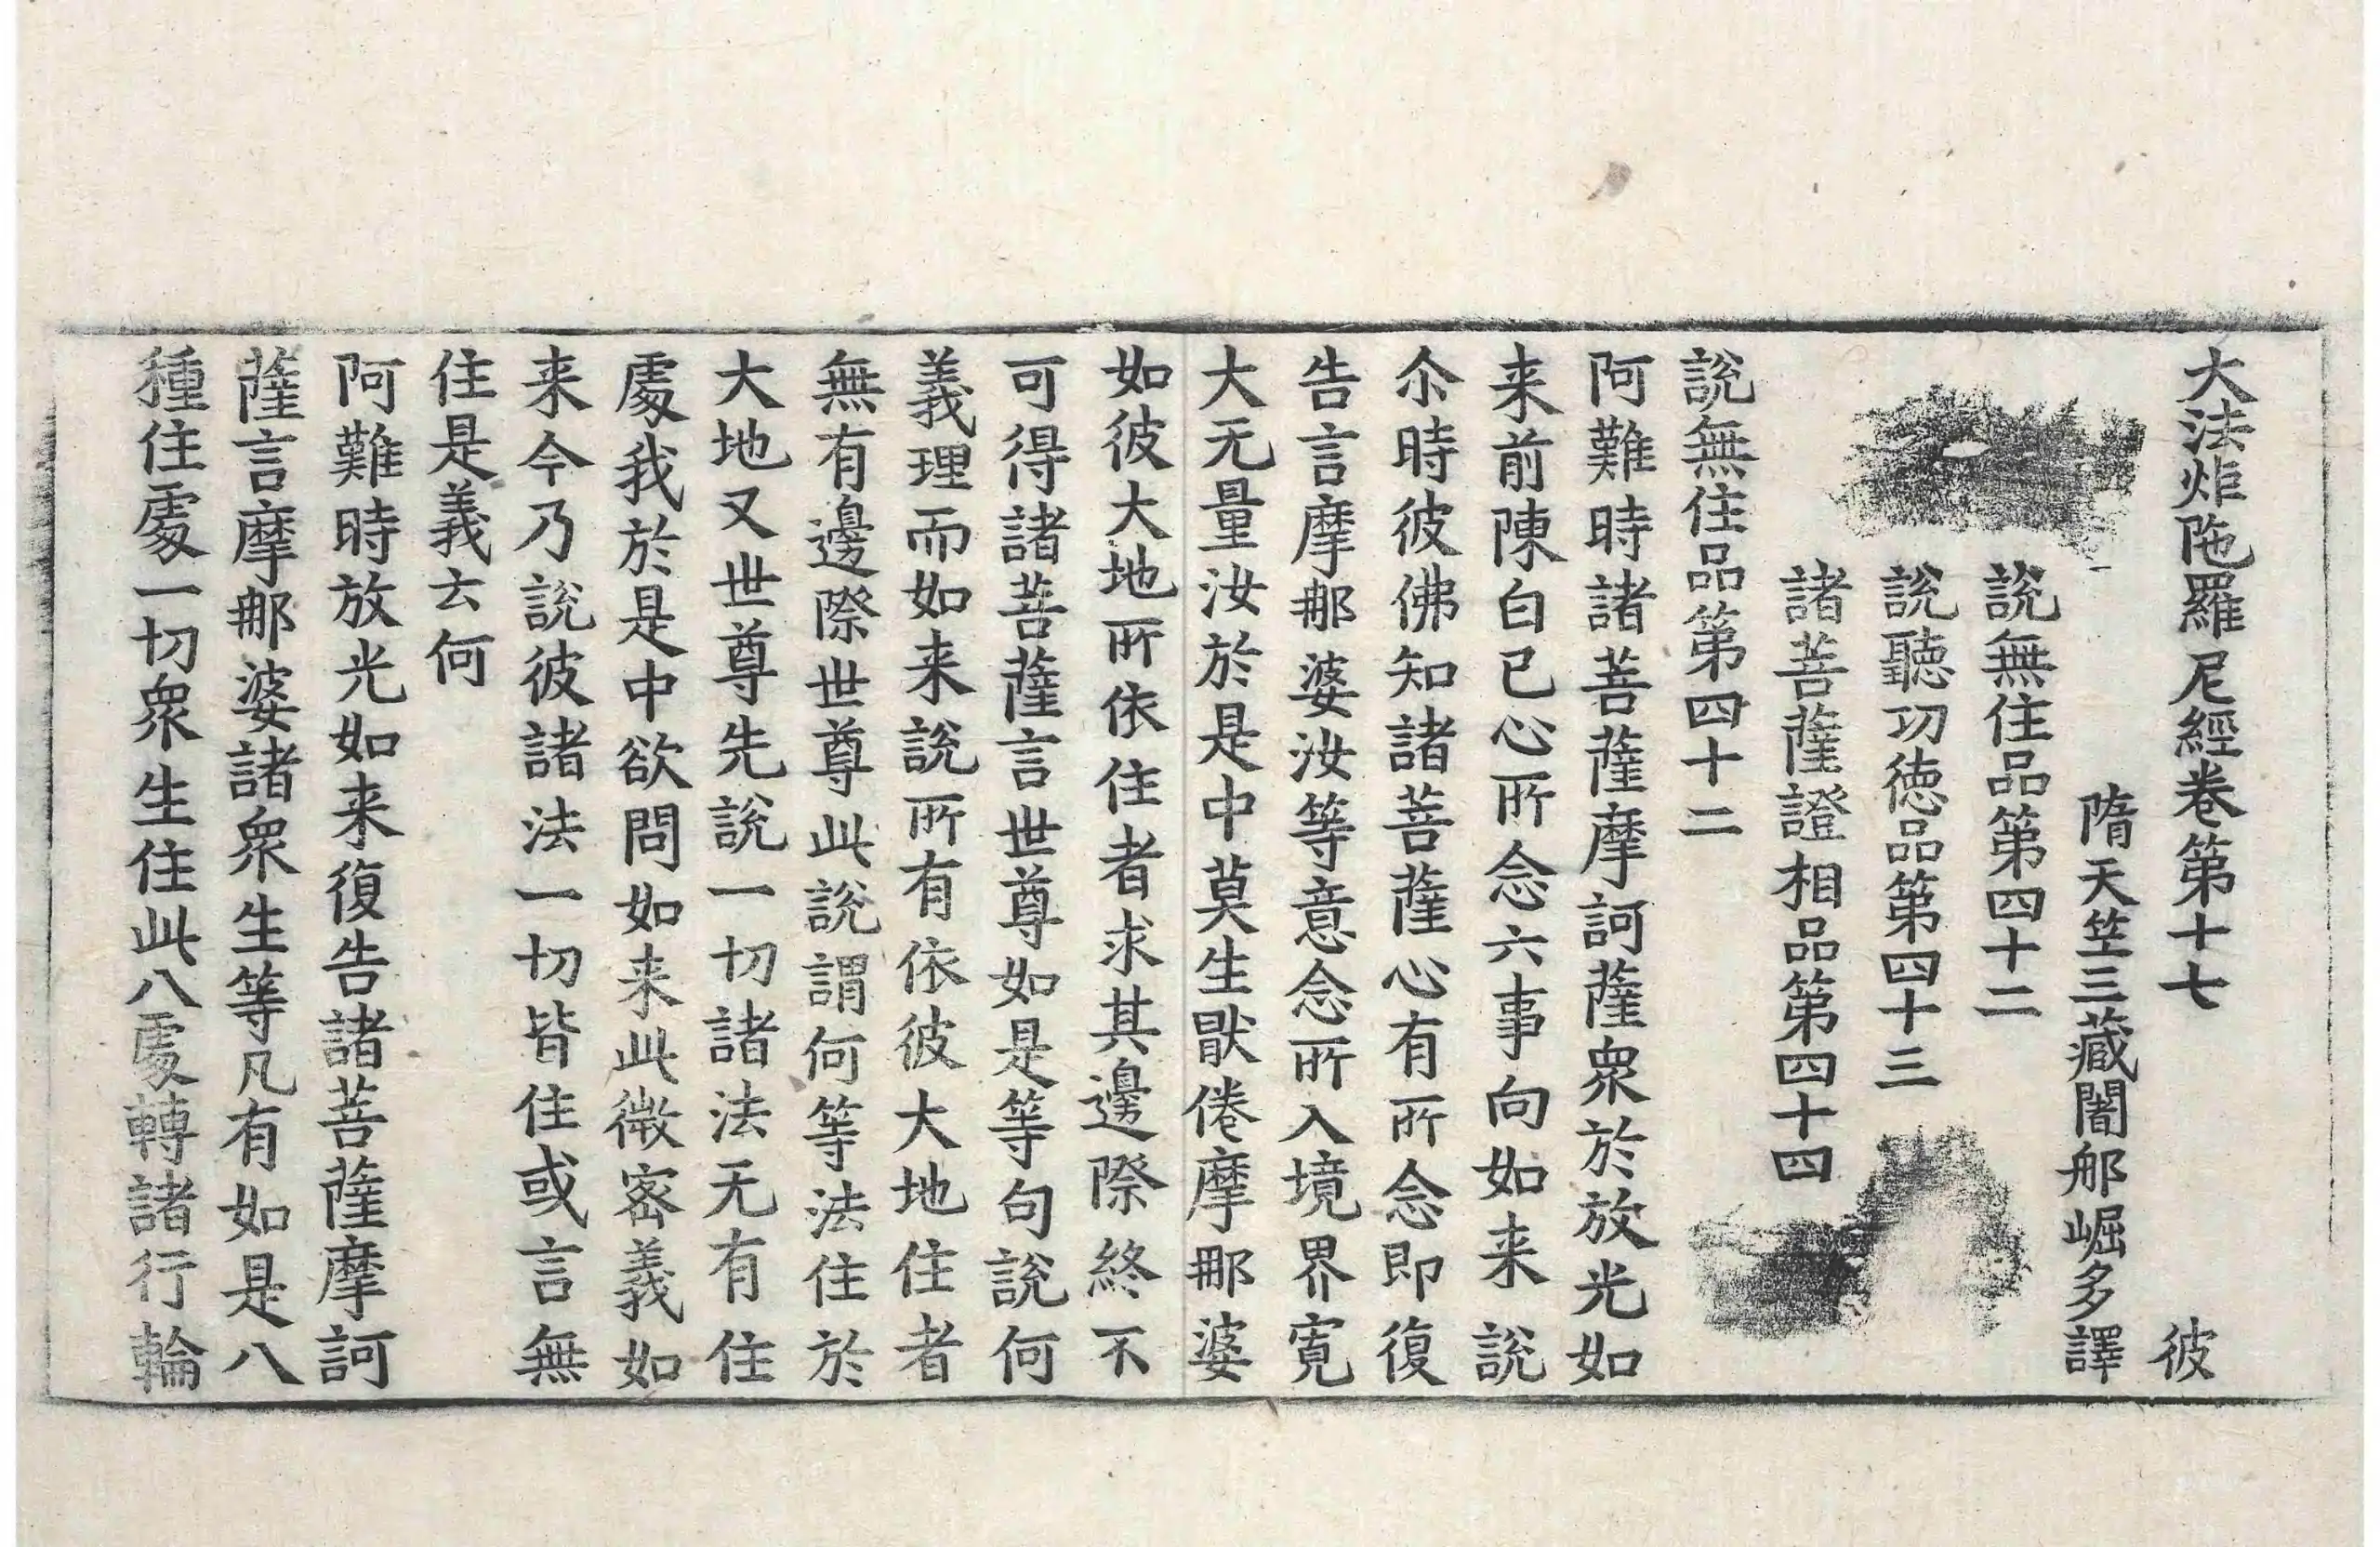 大法炬陁羅尼經卷第十七 彼
隋天笁三藏闍那崛多譯
說無住品第四十二
說聽功徳品第四十三
諸菩薩證相品第四十四
說無住品第四十二
阿難時諸菩薩摩訶薩衆於放光如
来前陳白已心所念六事向如来說
尒時彼佛知諸菩薩心有所念即復
告言摩那婆汝等意念所入境界寬
大无量汝於是中莫生猒倦摩那婆
如彼大地所依住者求其邊際終不
可得諸菩薩言世尊如是等句說何
義理而如来說所有依彼大地住者
無有邊際世尊此說謂何等法住於
大地又世尊先說一切諸法无有住
處我於是中欲問如来此微密義如
来今乃說彼諸法一切皆住或言無
住是義云何
阿難時放光如来復告諸菩薩摩訶
薩言摩那婆諸衆生等凡有如是八
種住處一切衆生住此八處轉諸行輪